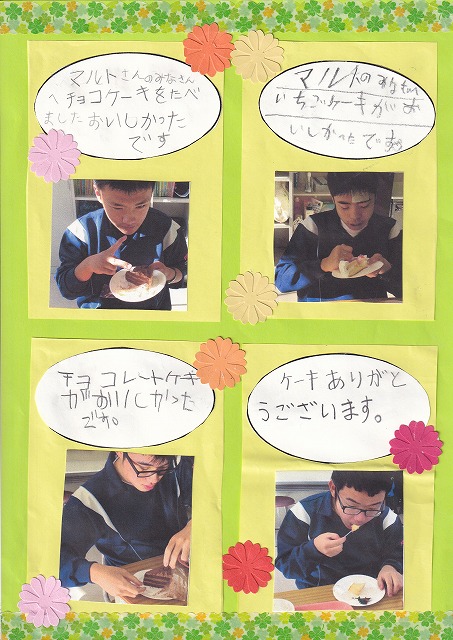 マルトさんのみなさん
へチョコケーキをたべ
ましたおいしかった
です
マルトのみなさんへ
いちごケーキがお
いしかったです
チョコレートケーキ
がおいしかった
です。
ケーキありがと
うございます。